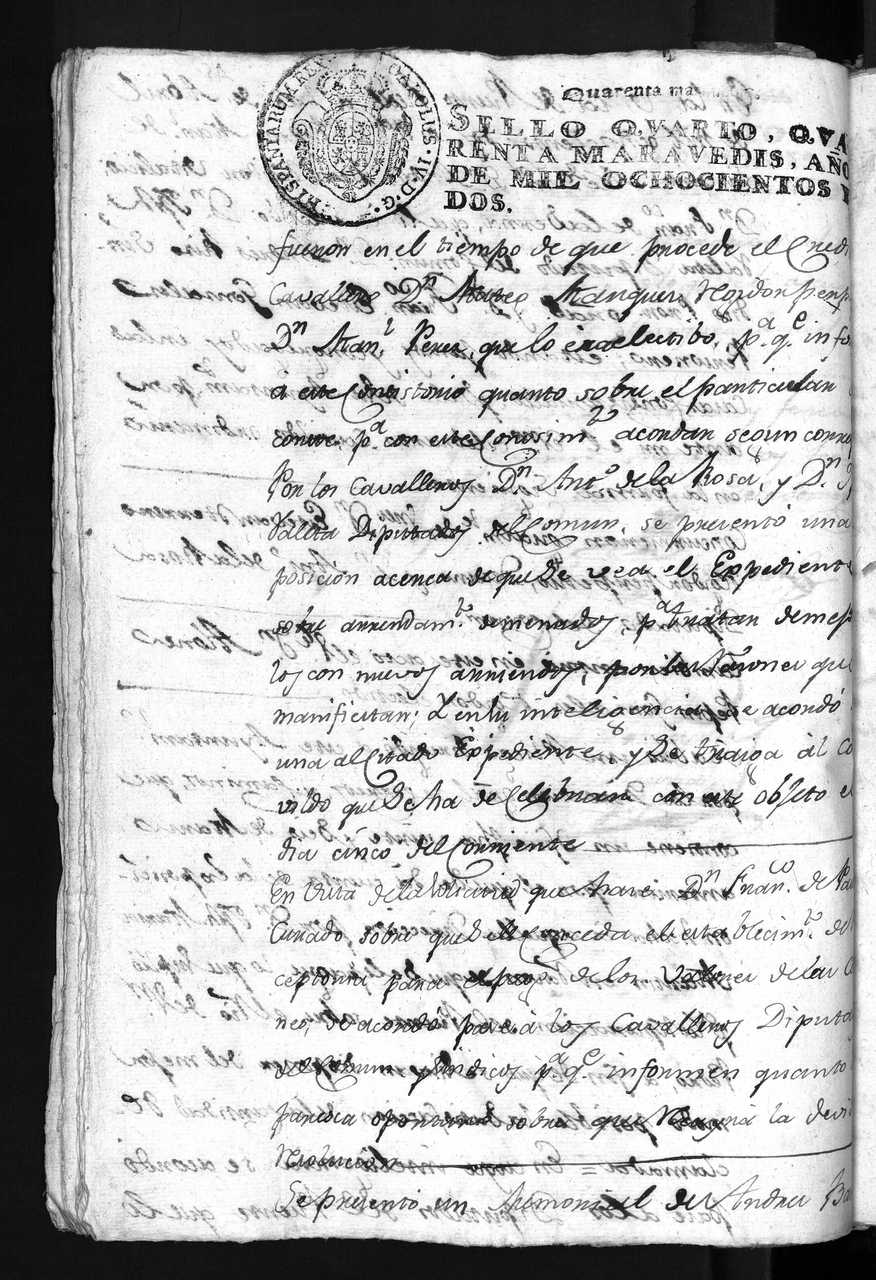 HISPANIARUM REX CAROLUS IV D.G.
Quarenta ma
SELLO QVARTO, QVA
RENTA MARAVEDIS, AÑO
DE MIL OCHOCIENTOS Y
DOS.
fueron en el tiempo de que procede el Credi
Cavallero Dn Mateo
Dn Manl Perez, que lo era electibo, pa qe info
á este Consistorio quanto sobre el particular
conste, pa con este Conosimto acordar segun corre
Por los Cavalleros Dn Anto de la Rosa, y Dn
Diputados del Comun, se presentó una
posicion acerca de que se vea el Expediente
sobre arrendamto de menados, pa tratar de
los con nuevos arriendos, por las razones que
manifiestan; Y en su inteligencia se acordó
una al Citado Expediente, y Se traiga al Ca
vildo que Se ha de Celebrar con este Objeto e
dia cinco del Corriente
En Vista de la Solicitud que hace Dn Franco de Pa
sobre que Se le Conceda el establecimto de
para el peso de los de las
se acordó pase á los Cavalleros Diputa
del Comun y Sindicos pa qe informen quanto
paresca oportuno sobre que la devi
Resolucion
Se presentó un Memorial de Andres Ba